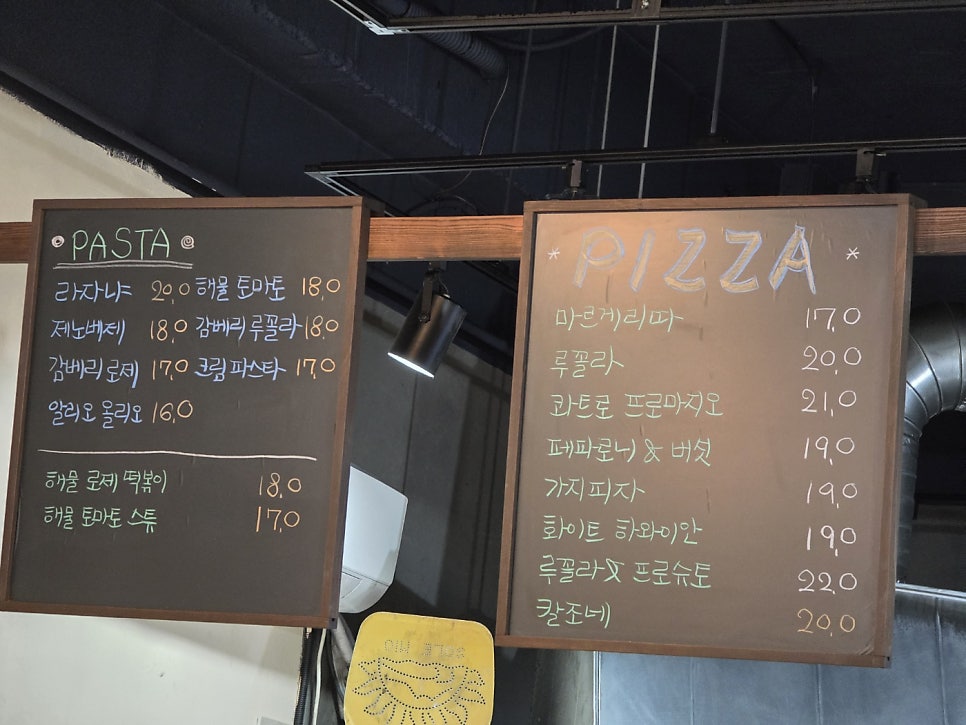 PASTA
라자냐 20,0 해물 토마토 18,0
제노베제 18,0 감베리 루꼴라 18,0
감베리 로제 17,0 크림파스타 17,0
알리오 올리오 16,0
해물 로제 떡볶이 18,0
해물 토마토 스튜 17,0
* PIZZA *
마르게리따 17,0
루꼴라 20,0
콰트로 프로마지오 21,0
페파로니 & 버섯 19,0
가지피자 19,0
화이트 하와이안 19,0
루꼴라 & 프로슈토 22,0
칼조네 20,0